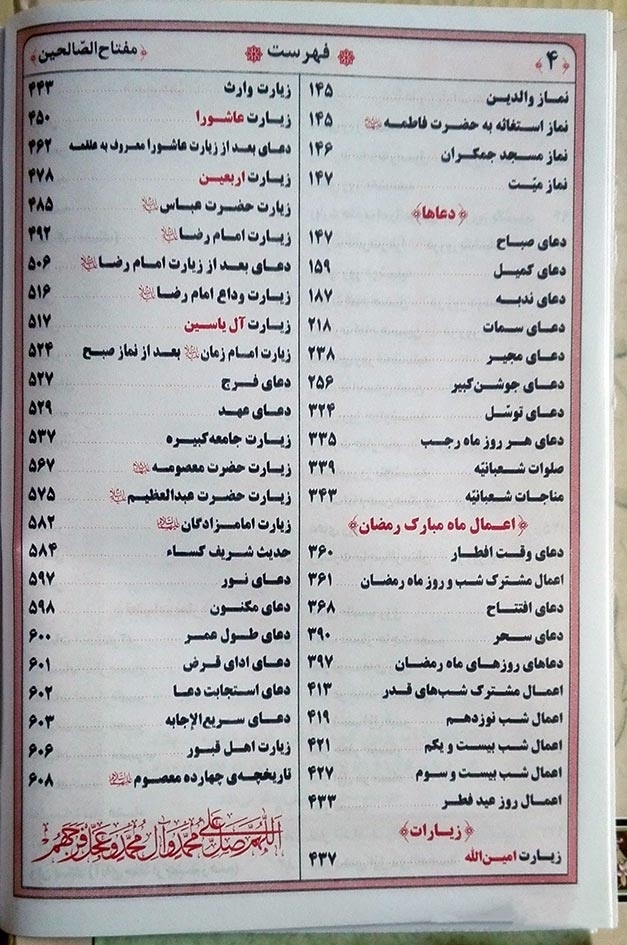 ﴿۴﴾ فهرست ﴿مفتاح الصّالحین﴾
نماز والدین ۱۴۵
نماز استغاثه به حضرت فاطمه ۱۴۵
نماز مسجد جمکران ۱۴۶
نماز میّت ۱۴۷
﴿دعاها﴾
دعای صباح ۱۴۷
دعای کمیل ۱۵۹
دعای ندبه ۱۸۷
دعای سمات ۲۱۸
دعای مجیر ۲۳۸
دعای جوشن‌کبیر ۲۵۶
دعای توسّل ۳۲۴
دعای هر روز ماه رجب ۳۳۵
صلوات شعبانیّه ۳۳۹
مناجات شعبانیّه ۳۴۳
﴿اعمال ماه مبارک رمضان﴾
دعای وقت افطار ۳۶۰
اعمال مشترک شب و روز ماه رمضان ۳۶۱
دعای افتتاح ۳۶۸
دعای سحر ۳۹۰
دعاهای روزهای ماه رمضان ۳۹۷
اعمال مشترک شب‌های قدر ۴۱۳
اعمال شب نوزدهم ۴۱۹
اعمال شب بیست و یکم ۴۲۱
اعمال شب بیست و سوم ۴۲۷
اعمال روز عید فطر ۴۳۳
﴿زیارات﴾
زیارت امین‌الله ۴۳۷
زیارت وارث ۴۴۳
زیارت عاشورا ۴۵۰
دعای بعد از زیارت عاشورا معروف به علقمه ۴۶۲
زیارت اربعین ۴۷۸
زیارت حضرت عباس ۴۸۵
زیارت امام رضا ۴۹۲
دعای بعد از زیارت امام رضا ۵۰۶
زیارت وداع امام رضا ۵۱۶
زیارت آل یاسین ۵۱۷
زیارت امام زمان بعد از نماز صبح ۵۲۴
دعای فرج ۵۲۷
دعای عهد ۵۲۹
زیارت جامعه کبیره ۵۳۷
زیارت حضرت معصومه ۵۶۷
زیارت حضرت عبدالعظیم ۵۷۵
زیارت امامزادگان ۵۸۲
حدیث شریف کساء ۵۸۴
دعای نور ۵۹۷
دعای مکنون ۵۹۸
دعای طول عمر ۶۰۰
دعای ادای قرض ۶۰۱
دعای استجابت دعا ۶۰۲
دعای سریع‌الإجابه ۶۰۳
زیارت اهل قبور ۶۰۶
تاریخچه‌ی چهارده معصوم ۶۰۸
اللّهم صلّ علی محمّد و آل محمّد و عجّل فرجهم